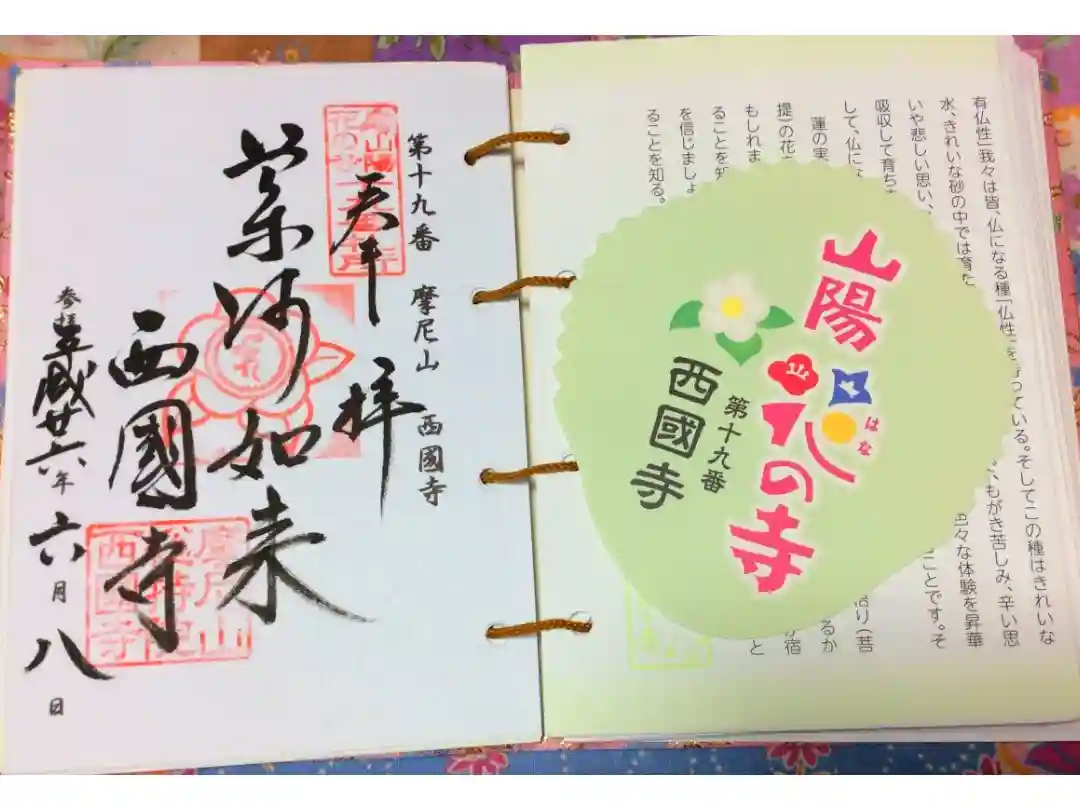 第十九番 摩尼山 西國寺
奉拝
薬師如来
西國寺
参拝平成廿六年六月八日
摩尼山
總持院
西國寺
有仏性」我々は皆、仏になる種「仏性」を持っている。そしてこの種はきれいな
水、きれいな砂の中では育た 、もがき苦しみ、辛い思
いや悲しい思い、 色々な体験を昇華
吸収して育ちま ことです。そ
して、仏にな 悟り(菩
蓮の実 るか
提)の花 が宿
もしれま と
ることを知
を信じましょ
ることを知る。
山陽
花の寺
はな
山
第十九番
西國寺